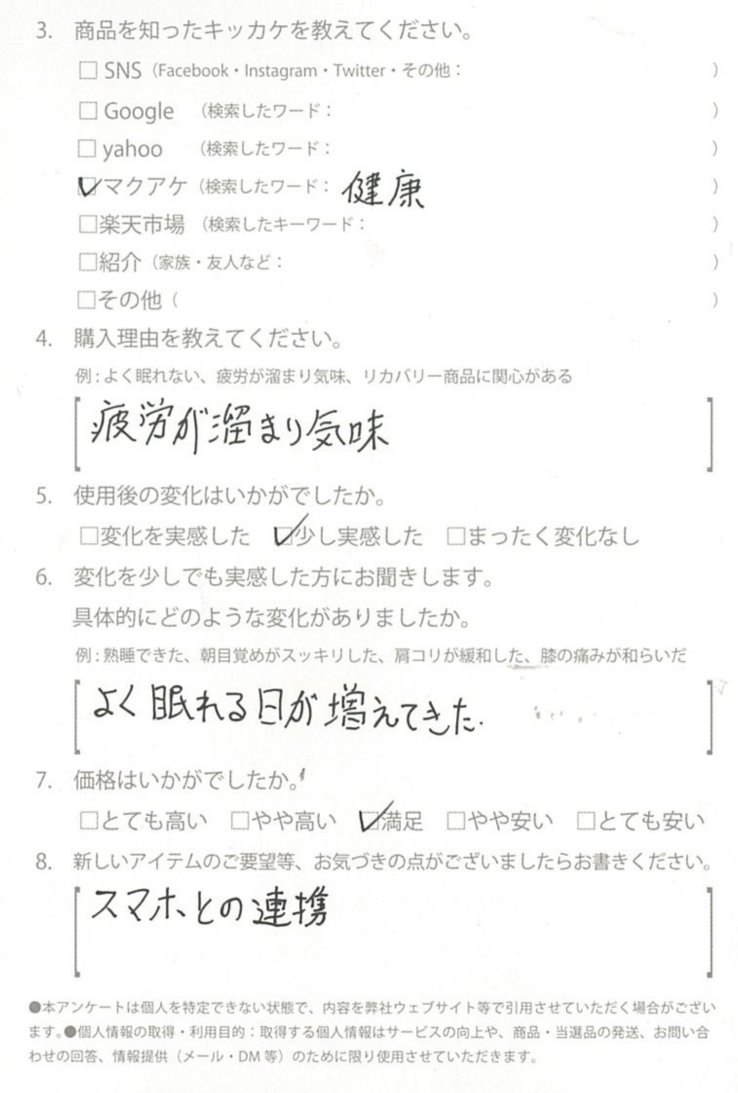 3. 商品を知ったキッカケを教えてください。
□ SNS（Facebook・Instagram・Twitter・その他： ）
□ Google （検索したワード： ）
□ yahoo （検索したワード： ）
☑マクアケ（検索したワード： 健康 ）
□楽天市場 （検索したキーワード： ）
□紹介（家族・友人など： ）
□その他（ ）
4. 購入理由を教えてください。
例：よく眠れない、疲労が溜まり気味、リカバリー商品に関心がある
疲労が溜まり気味
5. 使用後の変化はいかがでしたか。
□変化を実感した ☑少し実感した □まったく変化なし
6. 変化を少しでも実感した方にお聞きします。
具体的にどのような変化がありましたか。
例：熟睡できた、朝目覚めがスッキリした、肩コリが緩和した、膝の痛みが和らいだ
よく眠れる日が増えてきた.
7. 価格はいかがでしたか。
□とても高い □やや高い ☑満足 □やや安い □とても安い
8. 新しいアイテムのご要望等、お気づきの点がございましたらお書きください。
スマホとの連携
●本アンケートは個人を特定できない状態で、内容を弊社ウェブサイト等で引用させていただく場合がござい
ます。●個人情報の取得・利用目的：取得する個人情報はサービスの向上や、商品・当選品の発送、お問い合
わせの回答、情報提供（メール・DM 等）のために限り使用させていただきます。